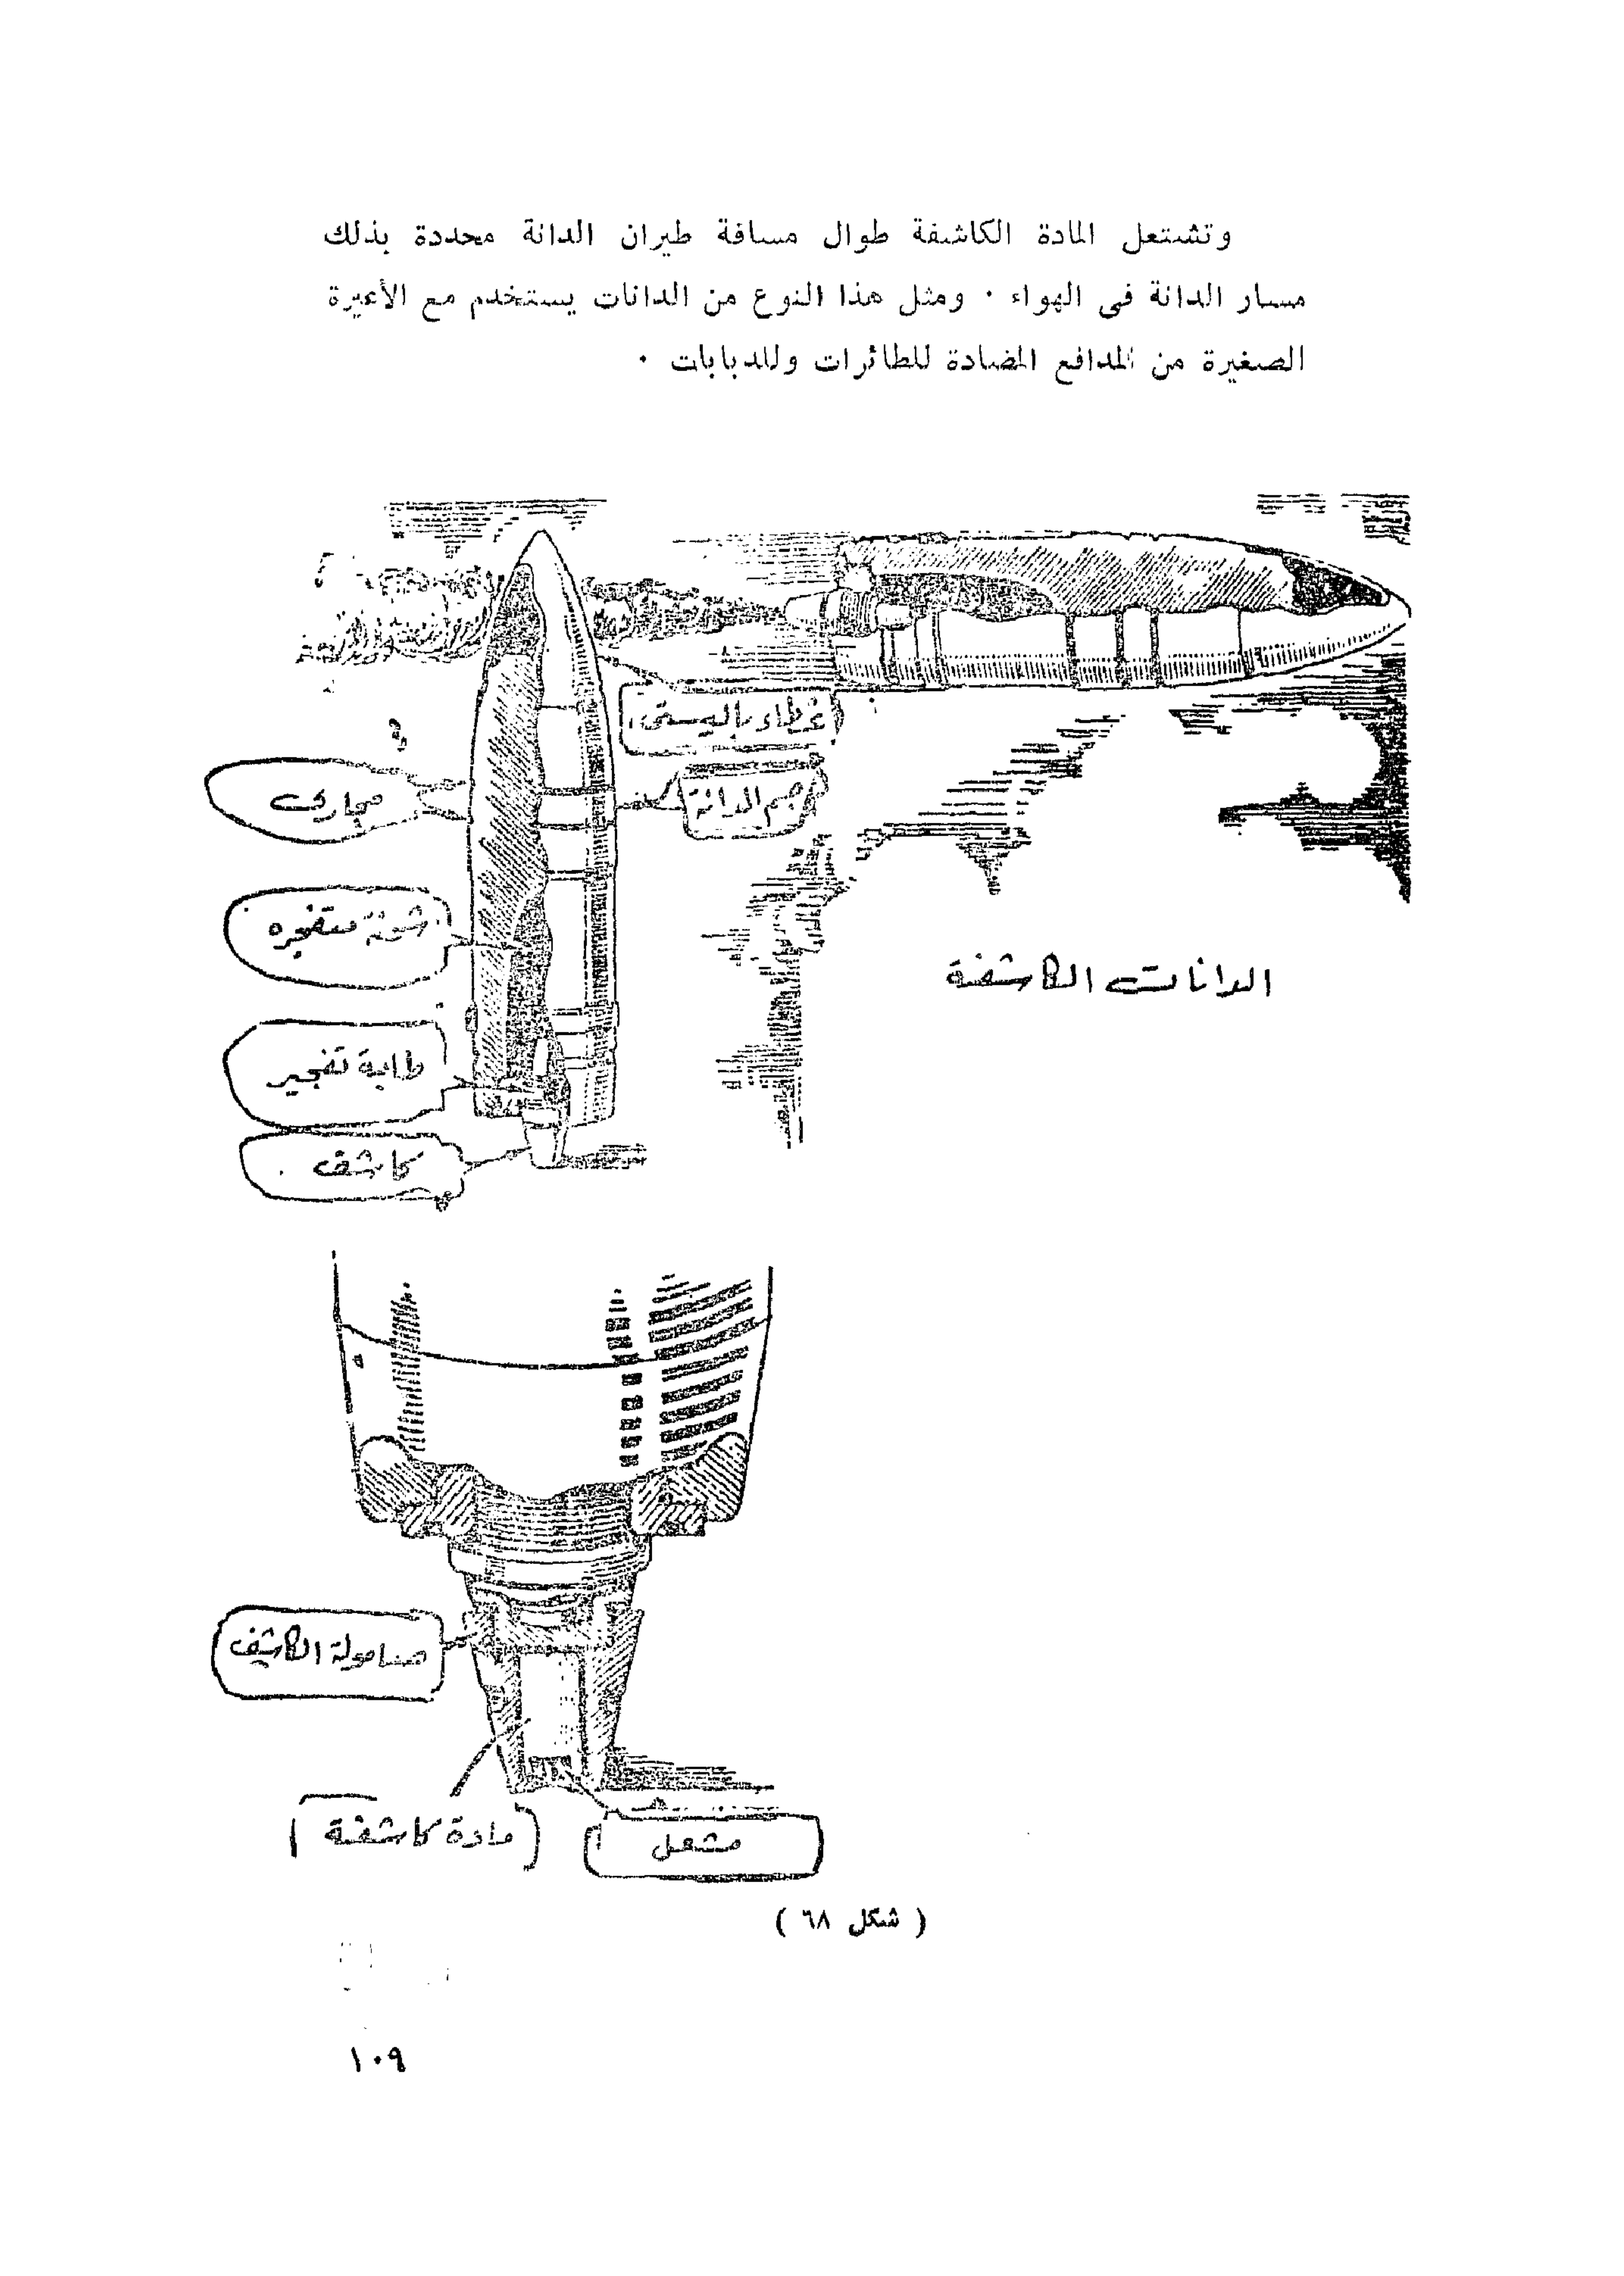 وتشتعل المادة الكاشفة طوال مسافة طيران الدانة محددة بذلك
مسار الدانة فى الهواء ٠ ومثل هذا النوع من الدانات يستخدم مع الأعيرة
الصغيرة من المدافع المضادة للطائرات وللدبابات ٠
غطاء باليستى
جسم الدانة
مجارى
شحنة متفجره
الدانات الكاشفة
طابة تفجير
كاشف
صامولة الكاشف
مادة كاشفة
مشعل
( شكل ٦٨ )
١٠٩